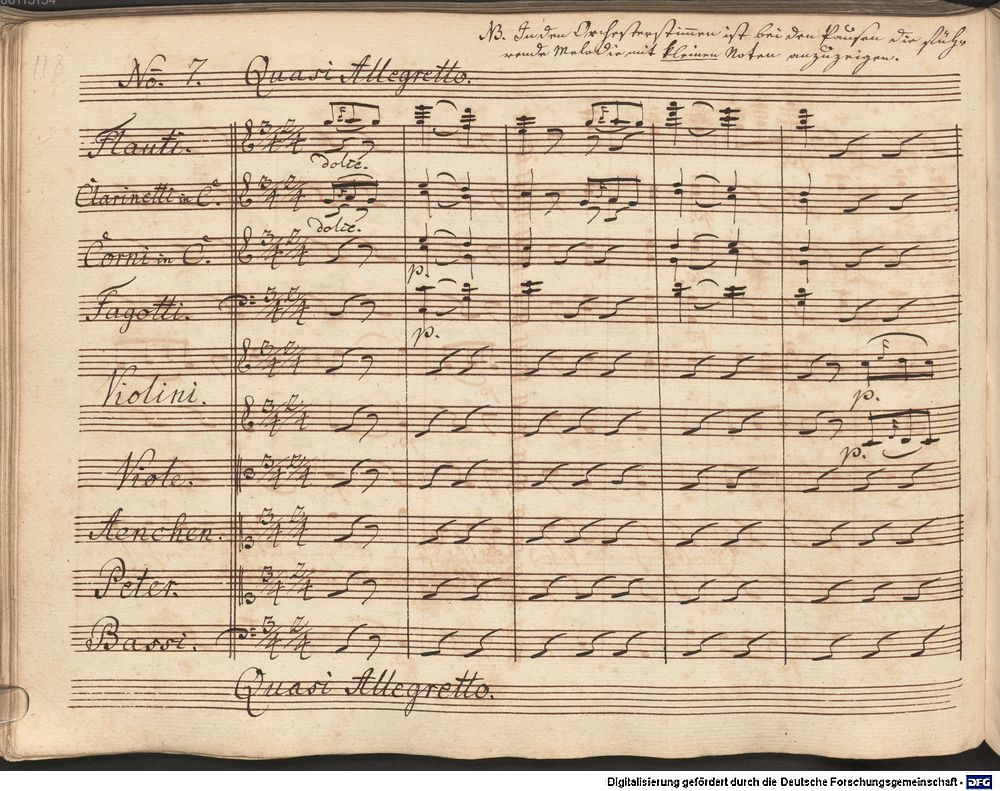 00115154
118
NB. In den Orchesterstimmen ist bei den Pausen die
rende Melodie mit kleinen Noten anzuzeigen.
No. 7. Quasi Allegretto.
Flauti. 3/4 2/4
dolce.
Clarinetti in C. 3/4 2/4
dolce.
Corni in C. 3/4 2/4
p.
Fagotti. 3/4 2/4
p.
Violini. 3/4 2/4
p.
3/4 2/4
p.
Viole. 3/4 2/4
Aenchen. 3/4 2/4
Peter. 3/4 2/4
Bassi. 3/4 2/4
Quasi Allegretto.
Digitalisierung gefördert durch die Deutsche Forschungsgemeinschaft - DFG